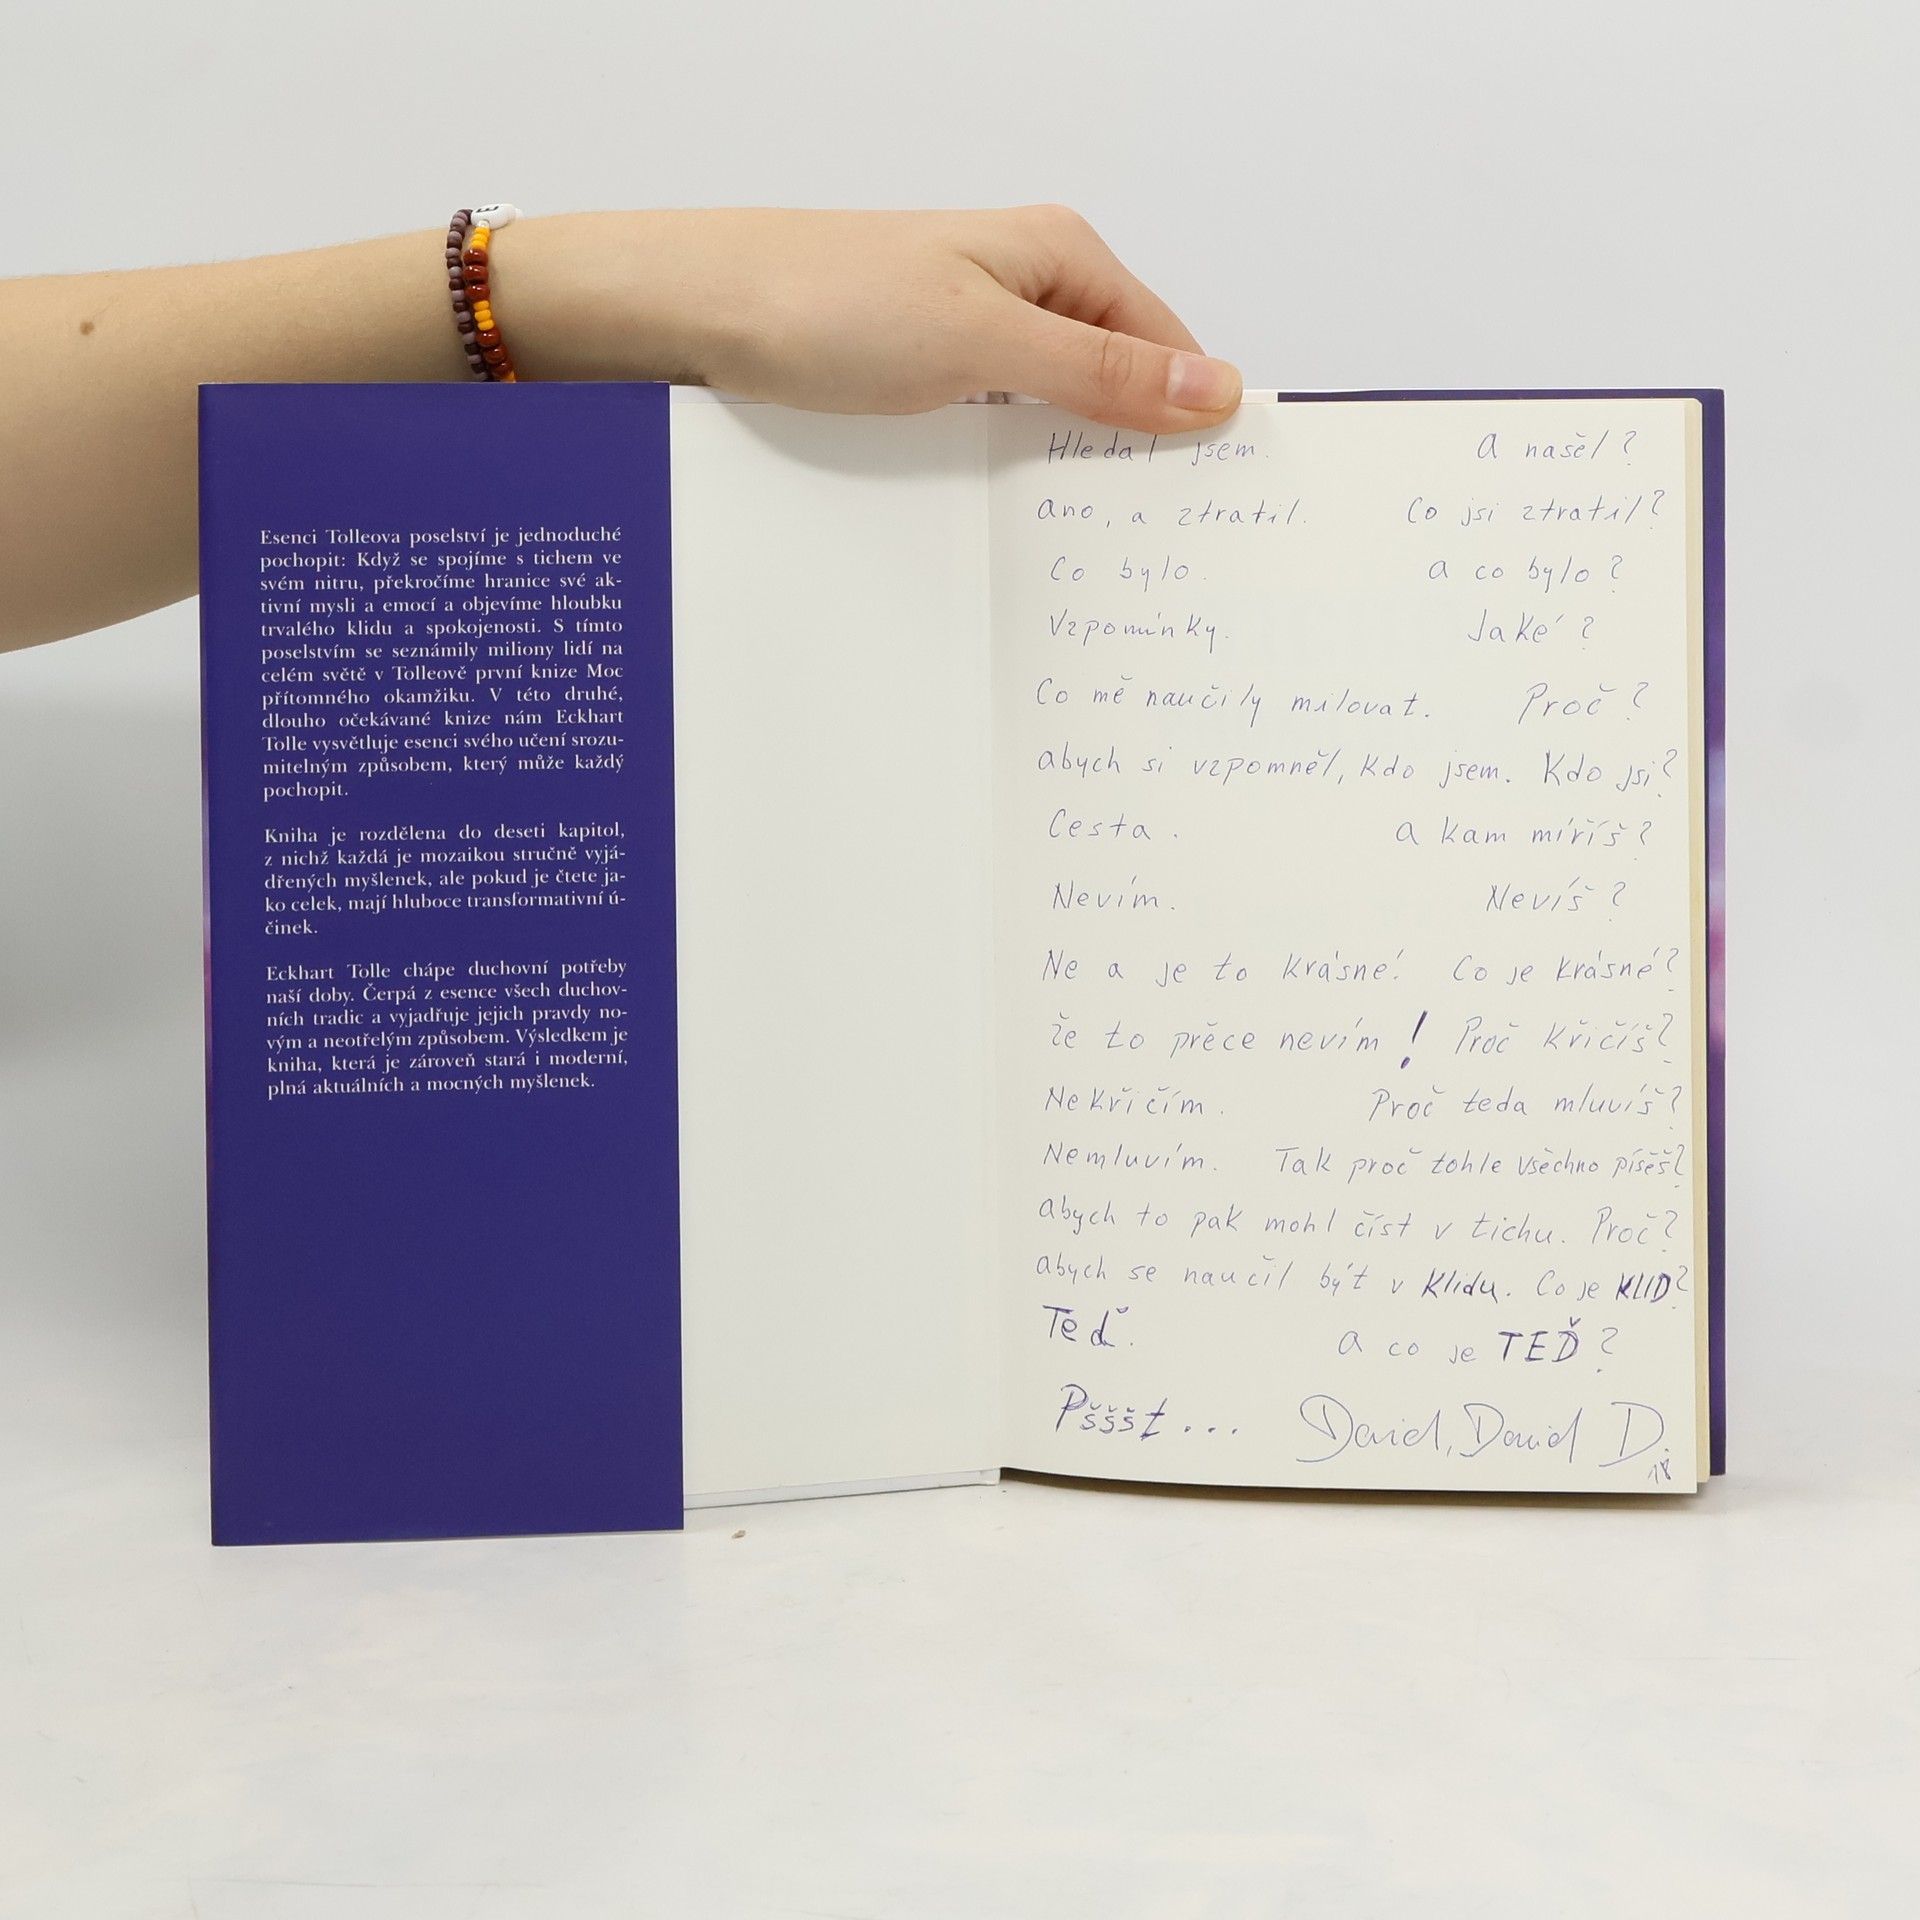 Esenci Tolleova poselství je jednoduché
pochopit: Když se spojíme s tichem ve
svém nitru, překročíme hranice své ak-
tivní mysli a emocí a objevíme hloubku
trvalého klidu a spokojenosti. S tímto
poselstvím se seznámily miliony lidí na
celém světě v Tolleově první knize Moc
přítomného okamžiku. V této druhé,
dlouho očekávané knize nám Eckhart
Tolle vysvětluje esenci svého učení srozu-
mitelným způsobem, který může každý
pochopit.
Kniha je rozdělena do deseti kapitol,
z nichž každá je mozaikou stručně vyjá-
dřených myšlenek, ale pokud je čtete ja-
ko celek, mají hluboce transformativní ú-
činek.
Eckhart Tolle chápe duchovní potřeby
naší doby. Čerpá z esence všech duchov-
ních tradic a vyjadřuje jejich pravdy no-
vým a neotřelým způsobem. Výsledkem je
kniha, která je zároveň stará i moderní,
plná aktuálních a mocných myšlenek.
Hledal jsem. A našěl?
ano, a ztratil. Co jsi ztratil?
Co bylo. a co bylo?
Vzpomínky. Jaké?
Co mě naučily milovat. Proč?
abych si vzpomněl, kdo jsem. Kdo jsi?
Cesta. a kam míříš?
Nevím. Nevíš?
Ne a je to krásné! Co je krásné?
že to přece nevím! Proč křičíš?
Nekřičím. Proč teda mluvíš?
Nemluvím. Tak proč tohle všechno píšěš?
abych to pak mohl číst v tichu. Proč?
abych se naučil být v klidu. Co je KLID?
Teď. a co je TEĎ?
Pšššt... David, David D.
18
E